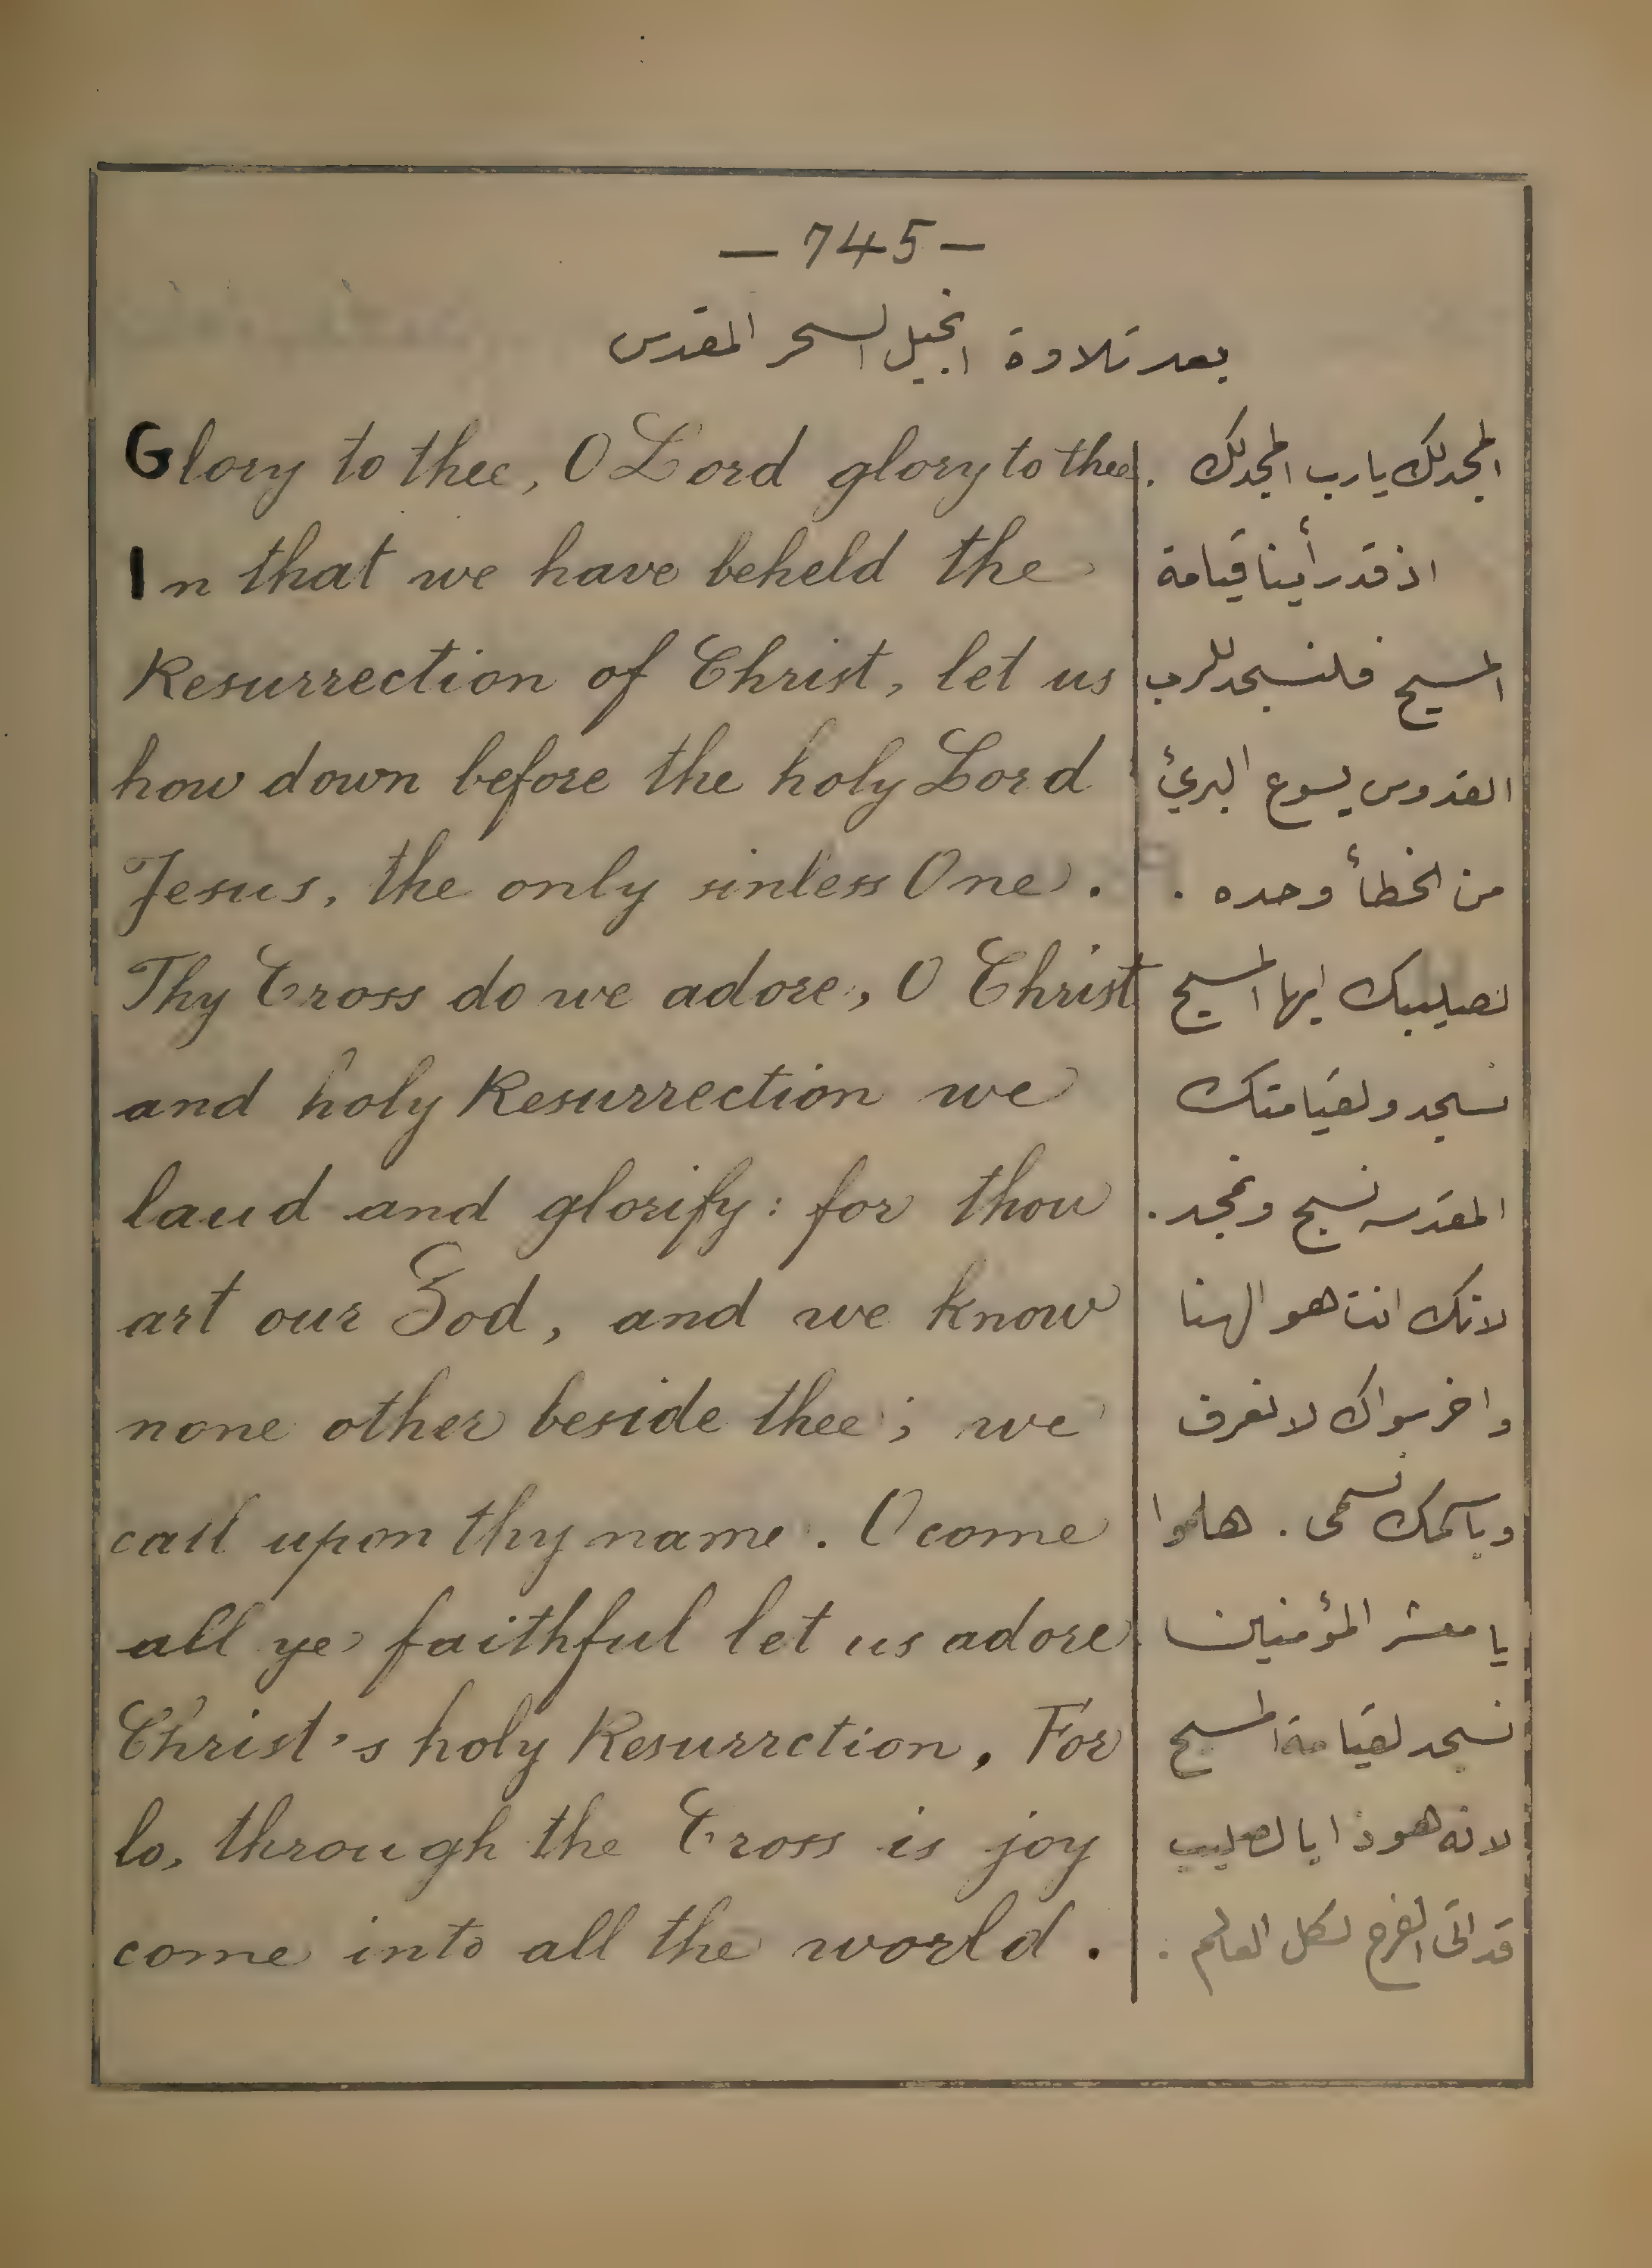 — 745 —
بعد تلاوة انجيل السحر المقدس
Glory to thee, O Lord glory to thee.
In that we have beheld the
Resurrection of Christ, let us
how down before the holy Lord
Jesus, the only sinless One.
Thy Cross do we adore, O Christ
and holy Resurrection we
laud and glorify: for thou
art our God, and we know
none other beside thee; we
call upon thy name. O come
all ye faithful let us adore
Christ's holy Resurrction, For
lo, through the Cross is joy
come into all the world.
المجد لك يا رب المجد لك.
اذ قد رأينا قيامة
المسيح فلنسجد للرب
القدوس يسوع البريء
من الخطأ وحده.
لصليبك ايها المسيح
نسجد ولقيامتك
المقدسه نسبح ونمجد.
لانك انت هو الهنا
واخر سواك لا نعرف
وباسمك نسمى. هلموا
يا معشر المؤمنين
نسجد لقيامة المسيح
لانه هوذا بالصليب
قد اتى الفرح لكل العالم.